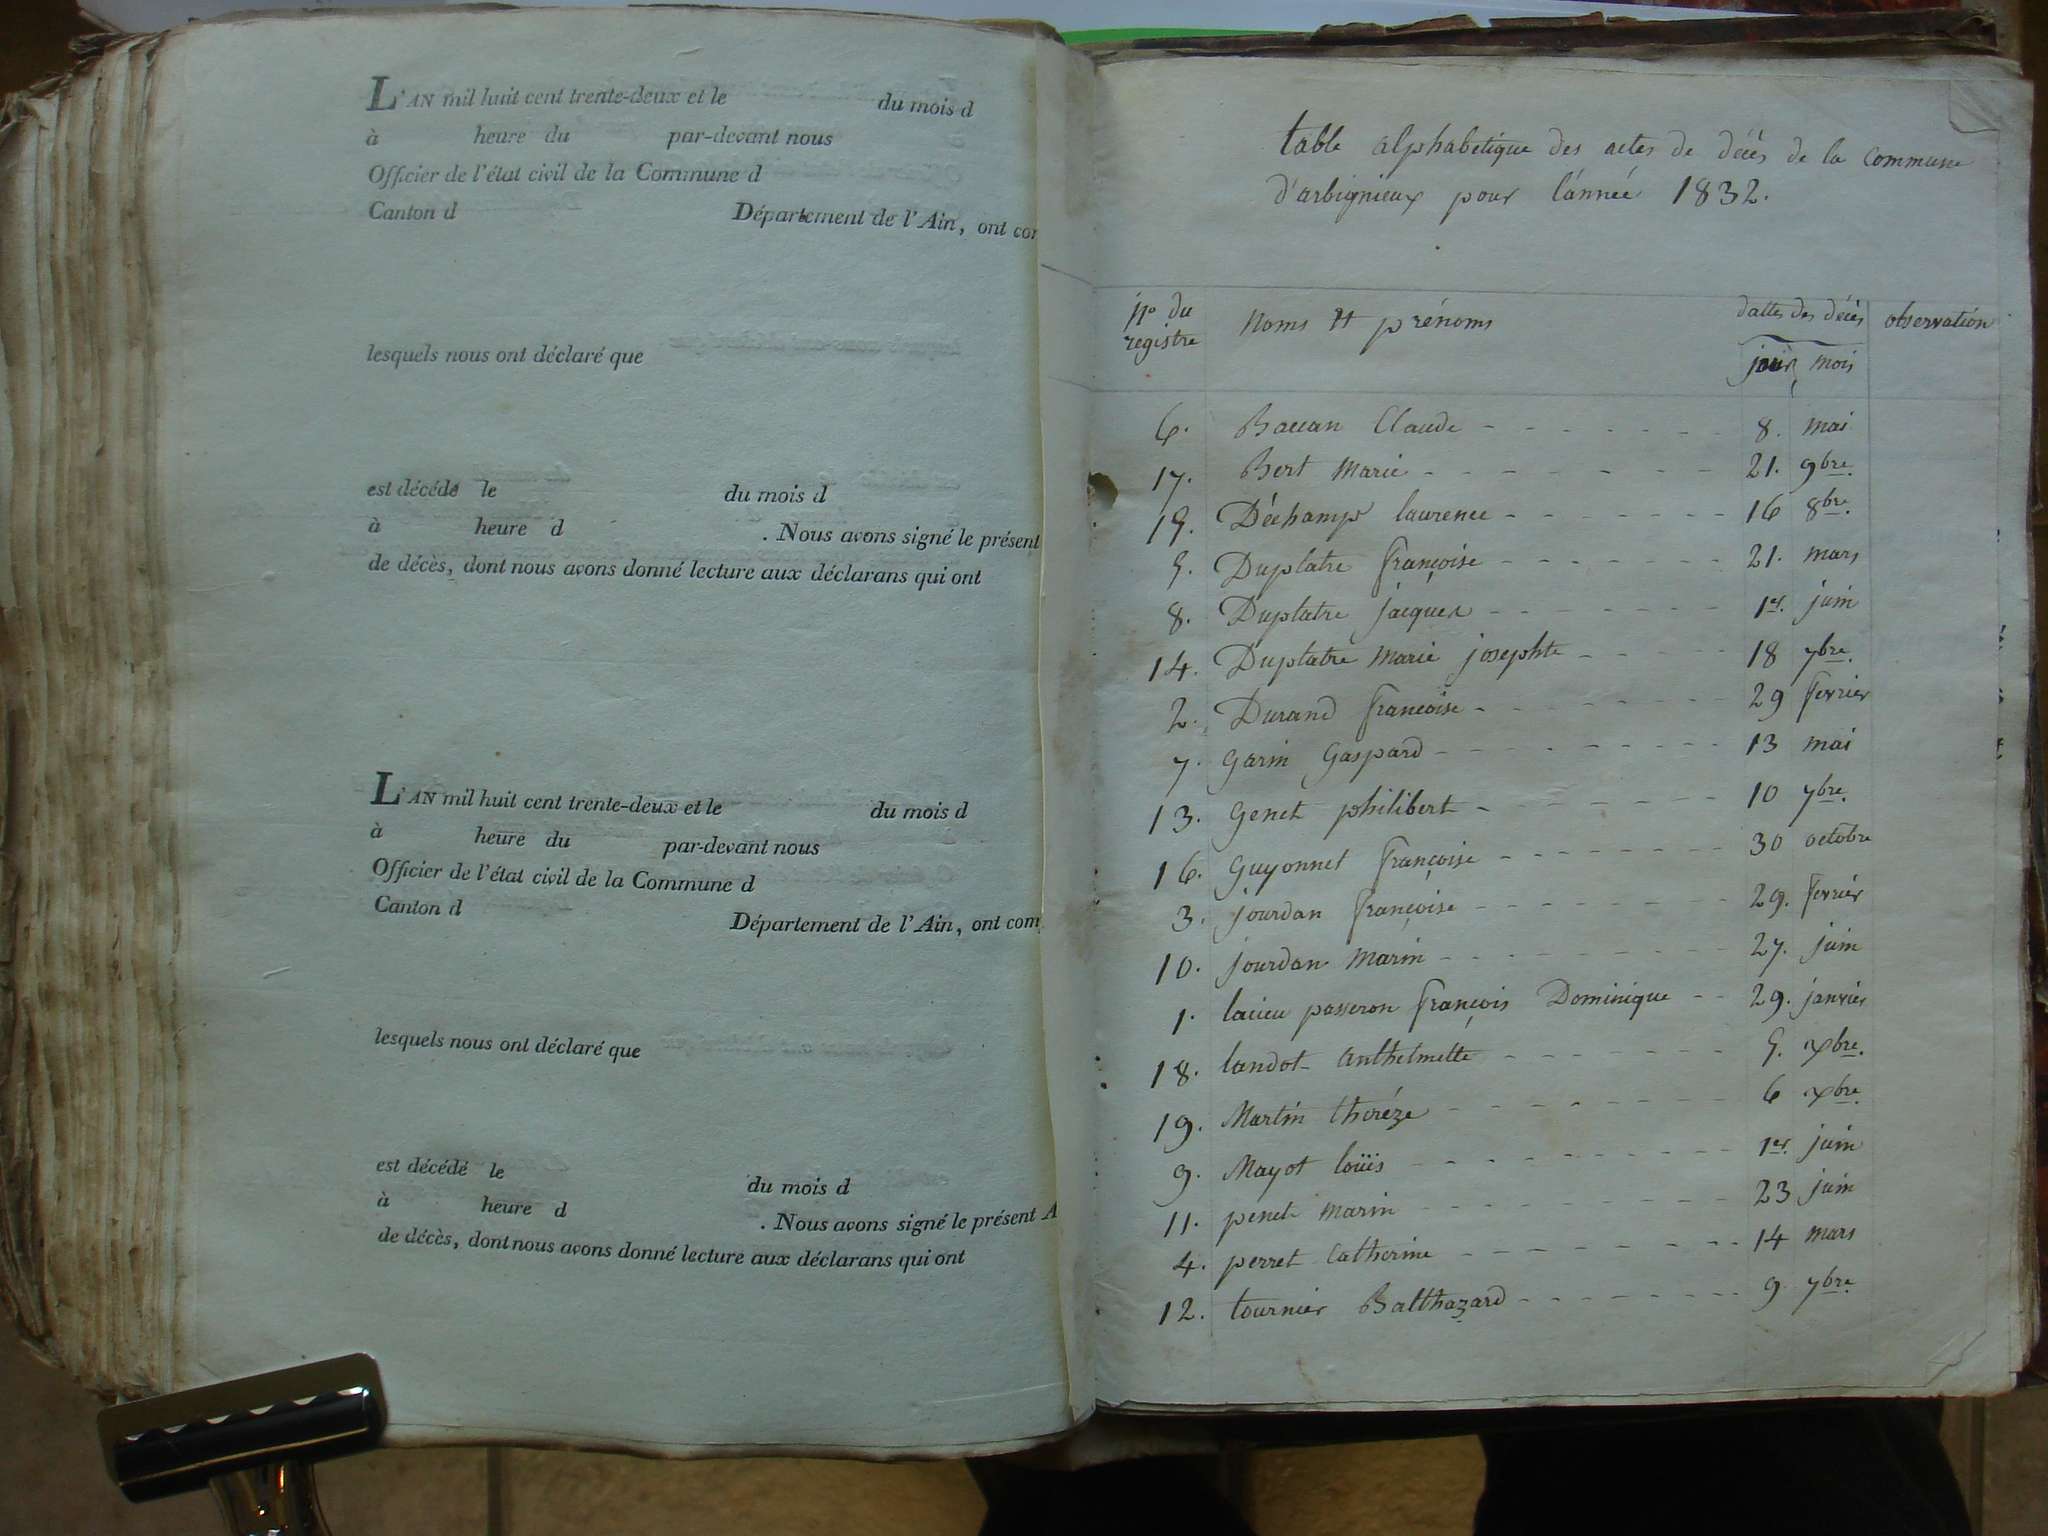 L'AN mil huit cent trente-deux et le du mois d
à heure du par-devant nous
Officier de l'état civil de la Commune d
Canton d Département de l'Ain, ont com
lesquels nous ont déclaré que
est décédé le du mois d
à heure d . Nous avons signé le présent
de décès, dont nous avons donné lecture aux déclarans qui ont
L'AN mil huit cent trente-deux et le du mois d
à heure du par-devant nous
Officier de l'état civil de la Commune d
Canton d Département de l'Ain, ont com
lesquels nous ont déclaré que
est décédé le du mois d
à heure d . Nous avons signé le présent A
de décès, dont nous avons donné lecture aux déclarans qui ont
table alphabétique des actes de décès de la commune
d'arbignieux pour l'année 1832.
No du registre Noms et prénoms dattes des décès observation
jour mois
6. Baccan Claude 8. mai
17. Bert Marie 21. 9bre.
15. Déchamps laurence 16 8bre.
5. Duplatre françoise 21. mars
8. Duplatre jacques 1er. juin
14. Duplatre Marie josephte 18 7bre.
2. Durand françoise 29 fevrier
7. Garin Gaspard 13 mai
13. Genet philibert 10 7bre.
16. Guyonnet françoise 30 octobre
3. jourdan françoise 29. fevrier
10. jourdan Marin 27. juin
1. passeron françois Dominique 29. janvier
18. landot anthelmette 5. xbre.
19. Martin thérèze 6 xbre.
9. Mayot loüis 1er. juin
11. penet marin 23 juin
4. perret Catherine 14 mars
12. tournier Balthazard 9 7bre.